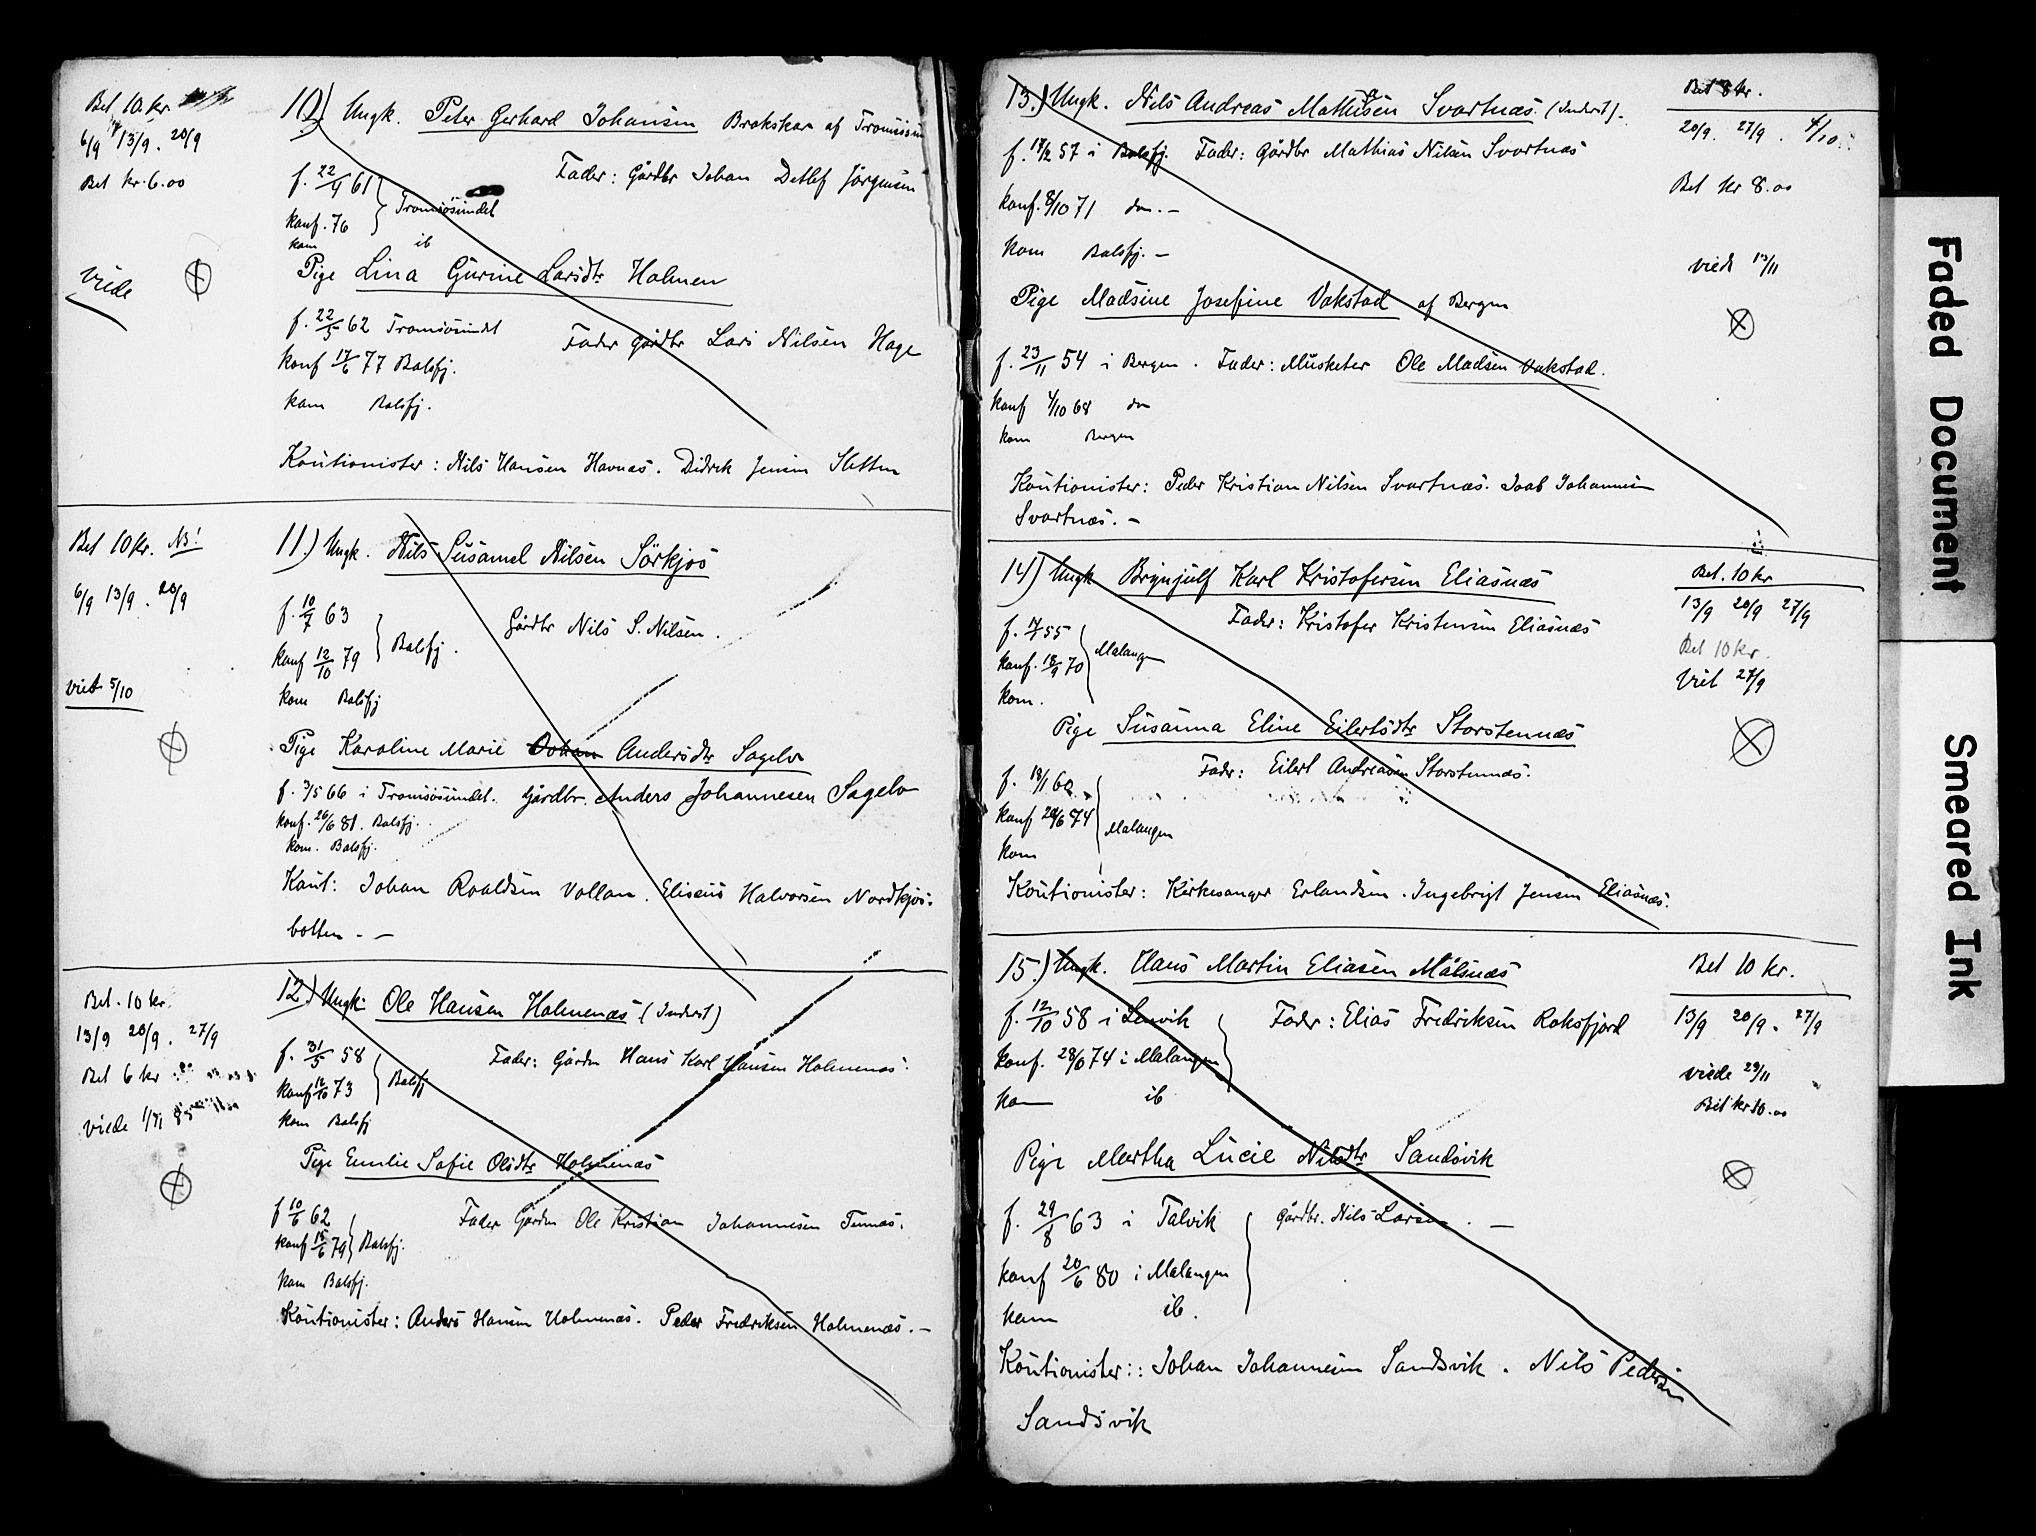 Bet 10 kr
6/9 13/9 . 20/9
Bet kr. 6.00
viede
10) Ungk. Peter Gerhard Johansen Brakskar af Tromsösun
f. 22/4 61 Fader: Gårdbr Johan Detlef Jörgensen
konf. 76 Tromsösundet
kom ib
Pige Lina Gurine Larsdtr Holmen
f. 22/5 62 Tromsösundet Fader Gårdbr Lars Nilsen Hage
konf 17/6 77 Balsfj.
kom Balsfj.
Kautionister: Nils Hansen Havnæs. Didrik Jensen Sletten
Bet 10 kr. NB!
6/9 13/9 . 20/9
viet 5/10
11.) Ungk. Nils Susamel Nilsen Sörkjos
f. 10/7 63 Gårdbr Nils S. Nilsen.
konf 12/10 79 Balsfj.
kom Balsfj
Pige Karoline Marie Andersdtr Sagelv
f. 3/5 66 i Tromsösundet. Gårdbr. Anders Johannesen Sagelv
konf. 26/6 81. Balsfj.
kom. Balsfj.
Kaut: Johan Roaldsen Vollan. Eliseus Halvorsen Nordkjos-
botten. –
Bet. 10 kr.
13/9 20/9 . 27/9
Bet 6 kr
viede 1/11 85
12.) Ungk: Ole Hansen Holmenæs (Inderst)
f. 31/5 58 Fader: Gårdm Hans Karl Hansen Holmenæs.
konf 12/10 73 Balsfj
kom Balsfj
Pige Emilie Sofie Olsdtr Holmenæs
f 10/6 62 Fader Gårdm Ole Kristian Johannesen Tennæs.
konf 15/6 79 Balsfj.
kom Balsfj.
Kautionister: Anders Hansen Holmenæs. Peder Fredriksen Holmenæs. –
13.) Ungk. Nils Andreas Mathisen Svartnæs. (Inderst).
f. 17/2 57 i Balsfj. Fader: Gårdbr Mathias Nilsen Svartnæs
konf. 8/10 71 do. –
kom Balsfj. –
Pige Madsine Josefine Vakstad af Bergen
f. 23/11 54 i Bergen . Fader: Musketer Ole Madsen Vakstad.
konf 4/10 68 do
kom Bergen
Kautionister: Peder Kristian Nilsen Svartnæs. Joab Johannesen
Svartnæs. –
Bet 8 kr.
20/9. 27/9. 4/10
Bet kr 8.00
viede 13/11
14) Ungk Brynjulf Karl Kristofersen Eliasnæs
Fader: Kristofer Kristensen Eliasnæs
f. 7/7 55
konf. 18/9 70 Malangen
kom.
Pige Susanna Eline Eilertsdtr Storstennæs
f. 18/1 60. Fader: Eilert Andreasen Storstennæs.
konf 28/6 74 Malangen
kom
Kautionister: Kirkesanger Erlandsen . Ingebrigt Jensen Eliasnæs.
Bet. 10 kr
13/9 20/9 27/9
Bet 10 kr.
Viet 27/9
15.) Ungk. Hans Martin Eliasen Målsnæs
f. 12/10 58 i Lenvik Fader: Elias Fredriksen Roksfjord
konf. 28/6 74 i Malangen
kom ib
Pige Martha Lucie Nilsdtr Sandsvik
f. 29/8 63 i Talvik Gårdbr. Nils Larsen . –
konf 20/6 80 i Malangen
kom ib.
Kautionister:: Johan Johannesen Sandsvik . Nils Pedersen
Sandsvik
Bet 10 kr.
13/9 20/9 . 27/9
viede 29/11
Bet kr 10.00
Faded Document
Smeared Ink